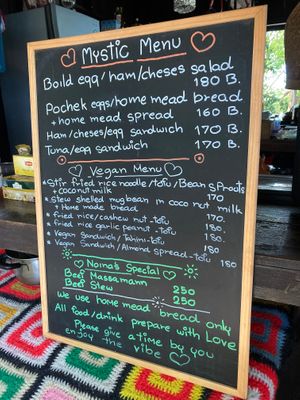 Mystic Menu
Boild egg/ham/cheses salad
180 B.
Pochek eggs/home mead bread
+ home mead spread 160 B.
Ham/cheses/egg sandwich 170 B.
Tuna/egg sandwich 170 B.
Vegan Menu
* Stir fried rice noodle/Tofu/Bean sprouts
+ coconut milk 170
* Stew shelled mugbean in coconut milk
+ Home made bread 170.
* fried rice/cashew nut -Tofu 180
* fried rice garlic peanut -Tofu 180.
* Vegan Sandwich/Tahini-Tofu 180
* Vegan Sandwich/Almond spread-Tofu 180
Noina's Special
Beef Massamann 250
Beef Stew 250
We use home mead bread only
All food/drink prepare with Love
Please give a time by you
enjoy the vibe